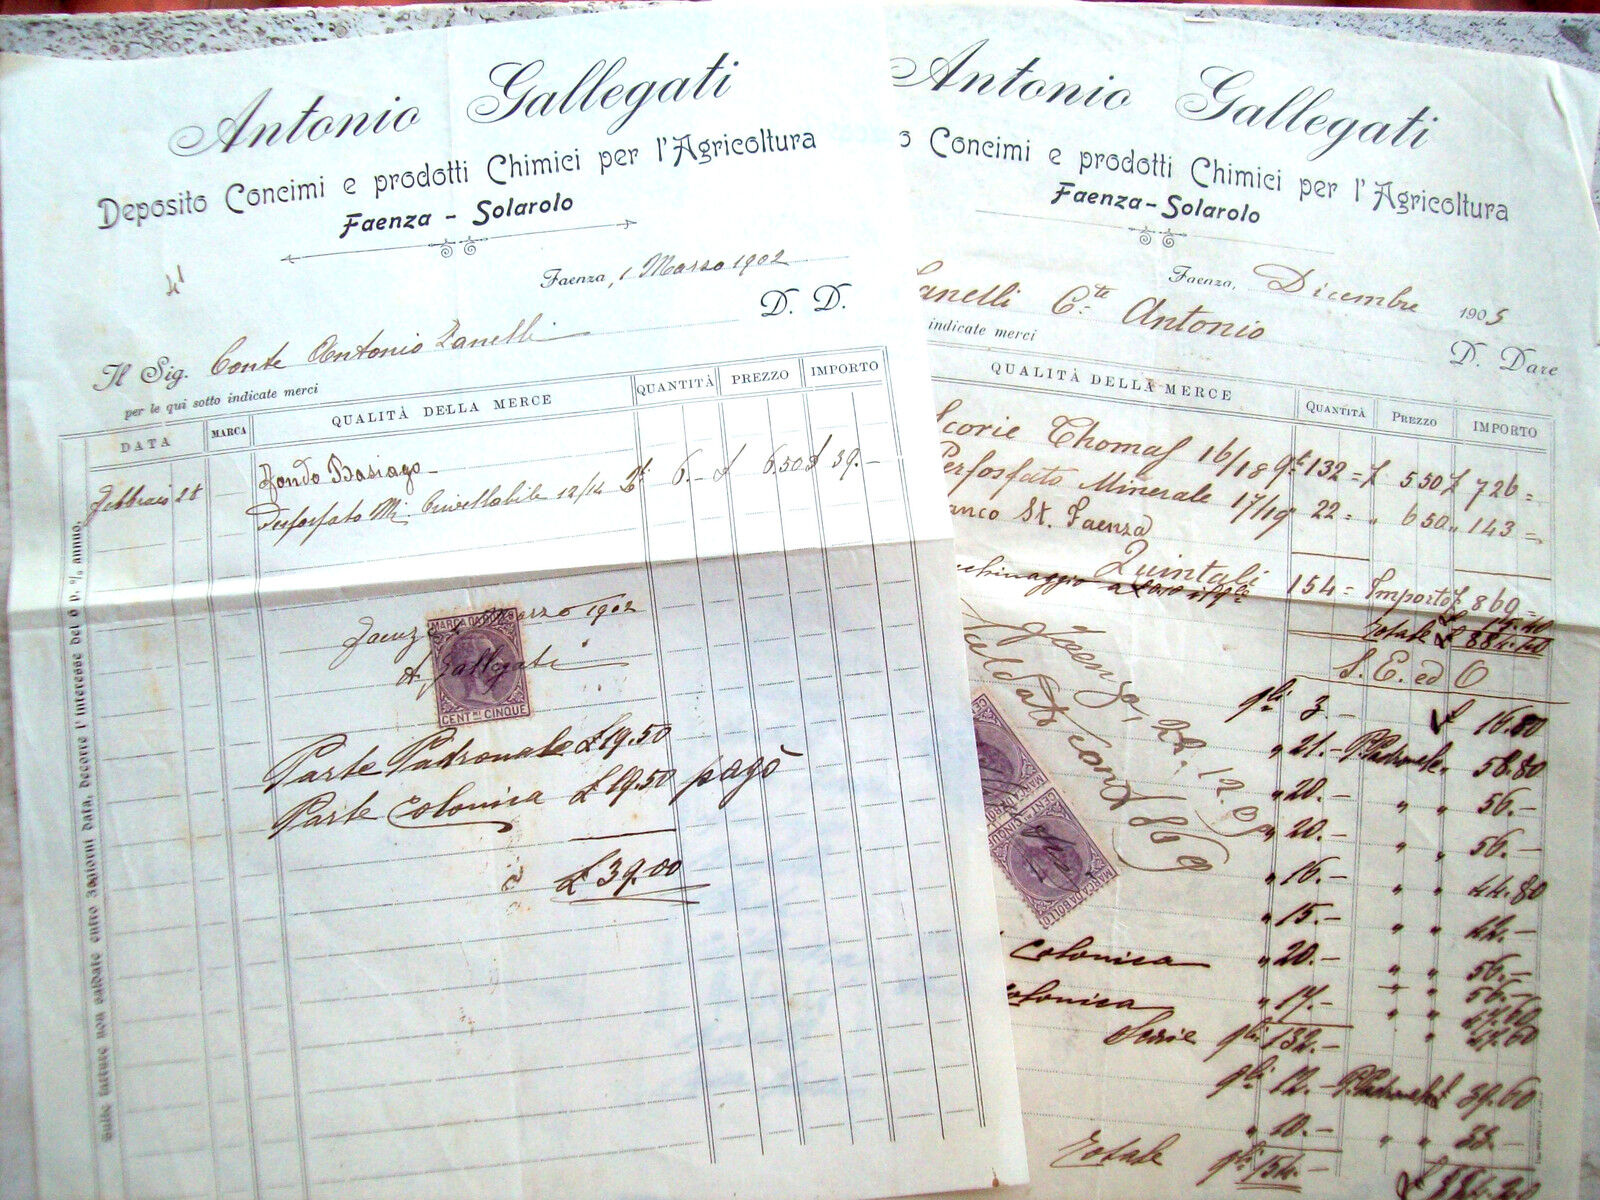 Antonio Gallegati
Deposito Concimi e prodotti Chimici per l'Agricoltura
Faenza - Solarolo
Faenza, 1 Marzo 1902
D. D.
Il Sig. Conte Antonio Zanelli
per le qui sotto indicate merci
DATA MARCA QUALITÀ DELLA MERCE QUANTITÀ PREZZO IMPORTO
Febbraio 28 Fondo Basiago
Perfosfato Mi. Crivellabile 12/14 6.- £ 6.50 £ 39.-
Faenza Marzo 1902
A Gallegati
MARCA DA BOLLO
CENT.MI CINQUE
Parte Padronale £ 19.50
Parte Colonica £ 19.50 pagò
£ 39.00
Sulle fatture non saldate entro giorni data, decorre l'interesse del 6 p. % annuo.
Antonio Gallegati
o Concimi e prodotti Chimici per l'Agricoltura
Faenza-Solarolo
Faenza, Dicembre 1905
Zanelli C.te Antonio
indicate merci
D. Dare
QUALITÀ DELLA MERCE QUANTITÀ PREZZO IMPORTO
Scorie Thomas 16/18 qt 132 = £ 5 50 £ 726 =
Perfosfato Minerale 17/19 22 = " 6 50 " 143 =
anco St. Faenza
Quintali 154 = Importo £ 869 =
Totale £ 884.40
S. E. ed O
Faenza, 22.12.05
Saldato Cont. 869
CENT.MI CINQUE
MARCA DA BOLLO
qli 3.- £ 16.80
" 21.- P. Padronale " 58.80
" 20.- " " 56.-
" 20.- " " 56.-
" 16.- " " 44.80
" 15.- " " 42.-
Colonica " 20.- " " 56.-
Colonica " 17.- " " 47.60
qli 132.-
qli 12.- P. Padronale £ 39.60
" 10.- " " 33.-
Totale qli 154.-